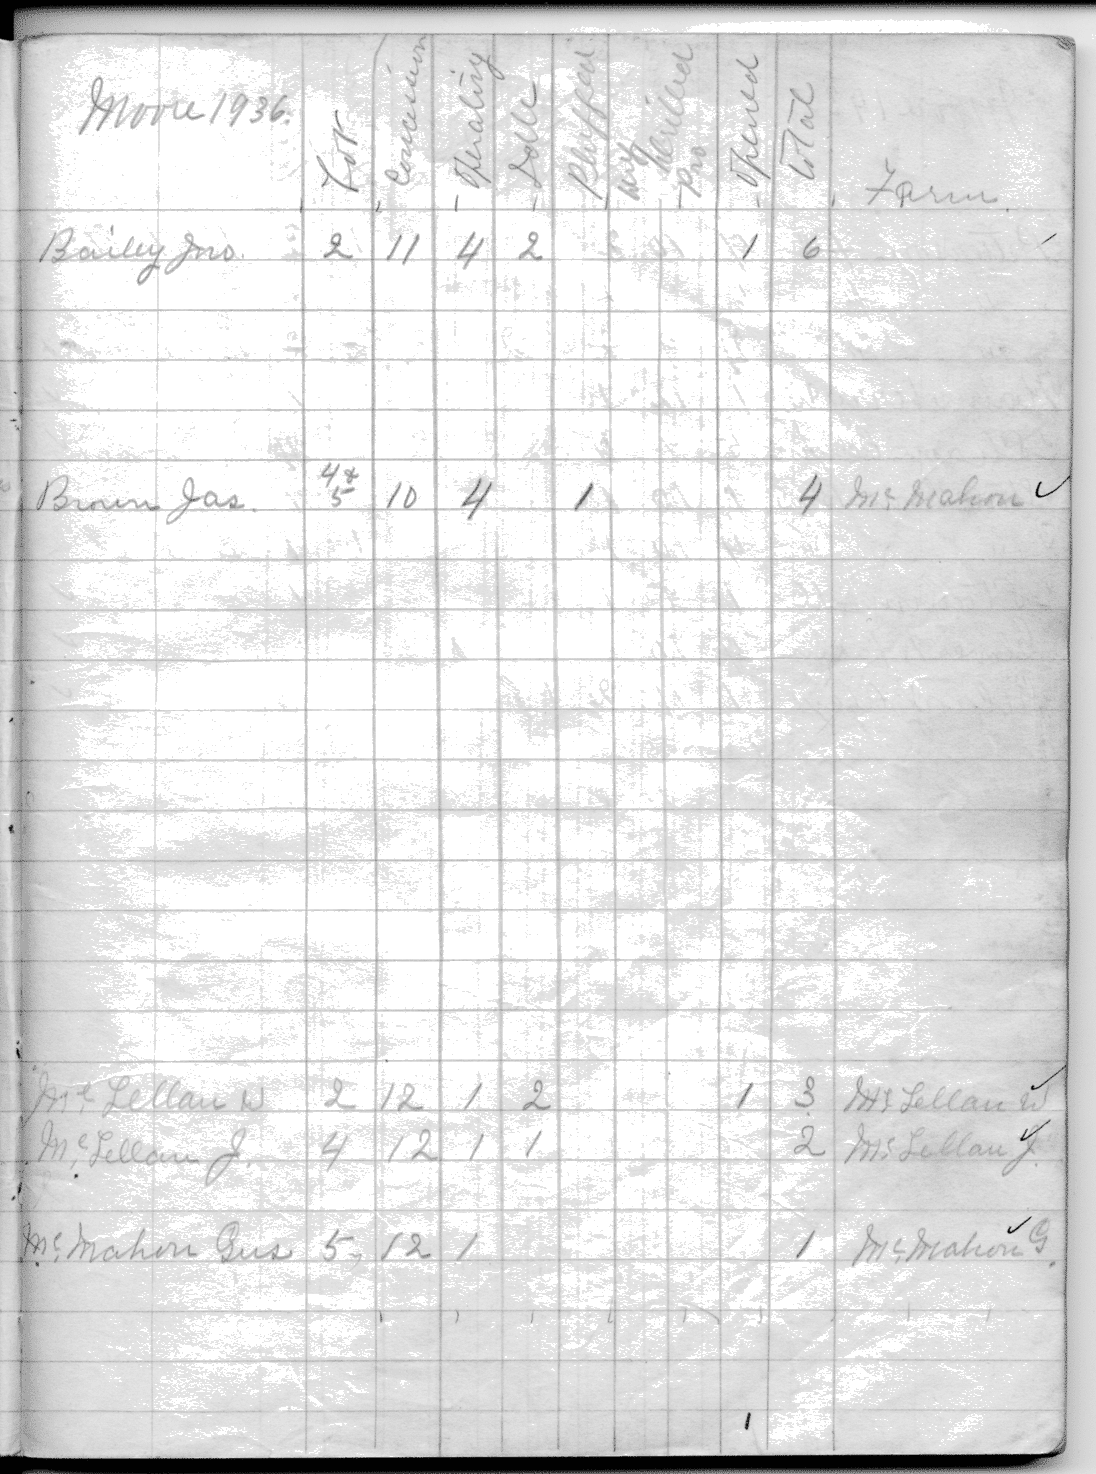 Moore 1936.
Lot Concession Operating Idle Plugged Dry Drilled Pro Opened Total Farm.
Bailey Jno. 2 11 4 2 1 6
Brown Jas. 4 & 5 10 4 1 4 Mc Mahon ✓
Mc Lellan W 2 12 1 2 1 3 Mc Lellan W ✓
Mc Lellan J. 4 12 1 1 2 Mc Lellan J. ✓
Mc Mahon Gus 5, 12 1 1 Mc Mahon G. ✓
1